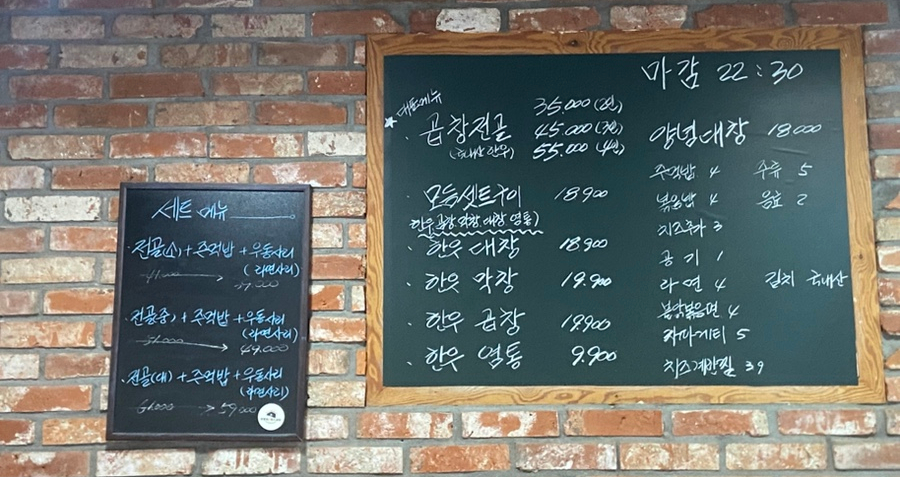 세트 메뉴
전골(소) + 주먹밥 + 우동사리
(라면사리)
41,000 → 39,000
전골(중) + 주먹밥 + 우동사리
(라면사리)
51,000 → 49,000
전골(대) + 주먹밥 + 우동사리
(라면사리)
61,000 → 59,000
마감 22:30
대표메뉴
35.000 (2인)
곱창전골 45.000 (3인)
(국내산 한우) 55.000 (4인)
모듬셋트구이 18.900
한우 곱창 막창 대창 염통)
한우 대창 18.900
한우 막창 19.900
한우 곱창 19.900
한우 염통 9.900
양념대창 18000
주먹밥 4 주류 5
볶음밥 4 음료 2
치즈추가 3
공기 1
라면 4 김치 국내산
불닭볶음면 4
짜파게티 5
치즈계란찜 3.9